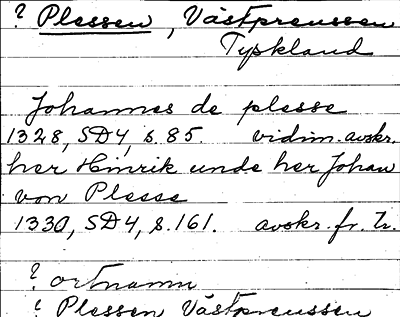 ? Plessen, Västpreussen
Tyskland
Johannes de plesse
1328, SD4, s. 85. vidim. avskr.
her Hinrik unde her Johan
von Plesse
1330, SD4, s. 161. avskr. fr. Tr.
? ortnamn
? Plessen Västpreussen